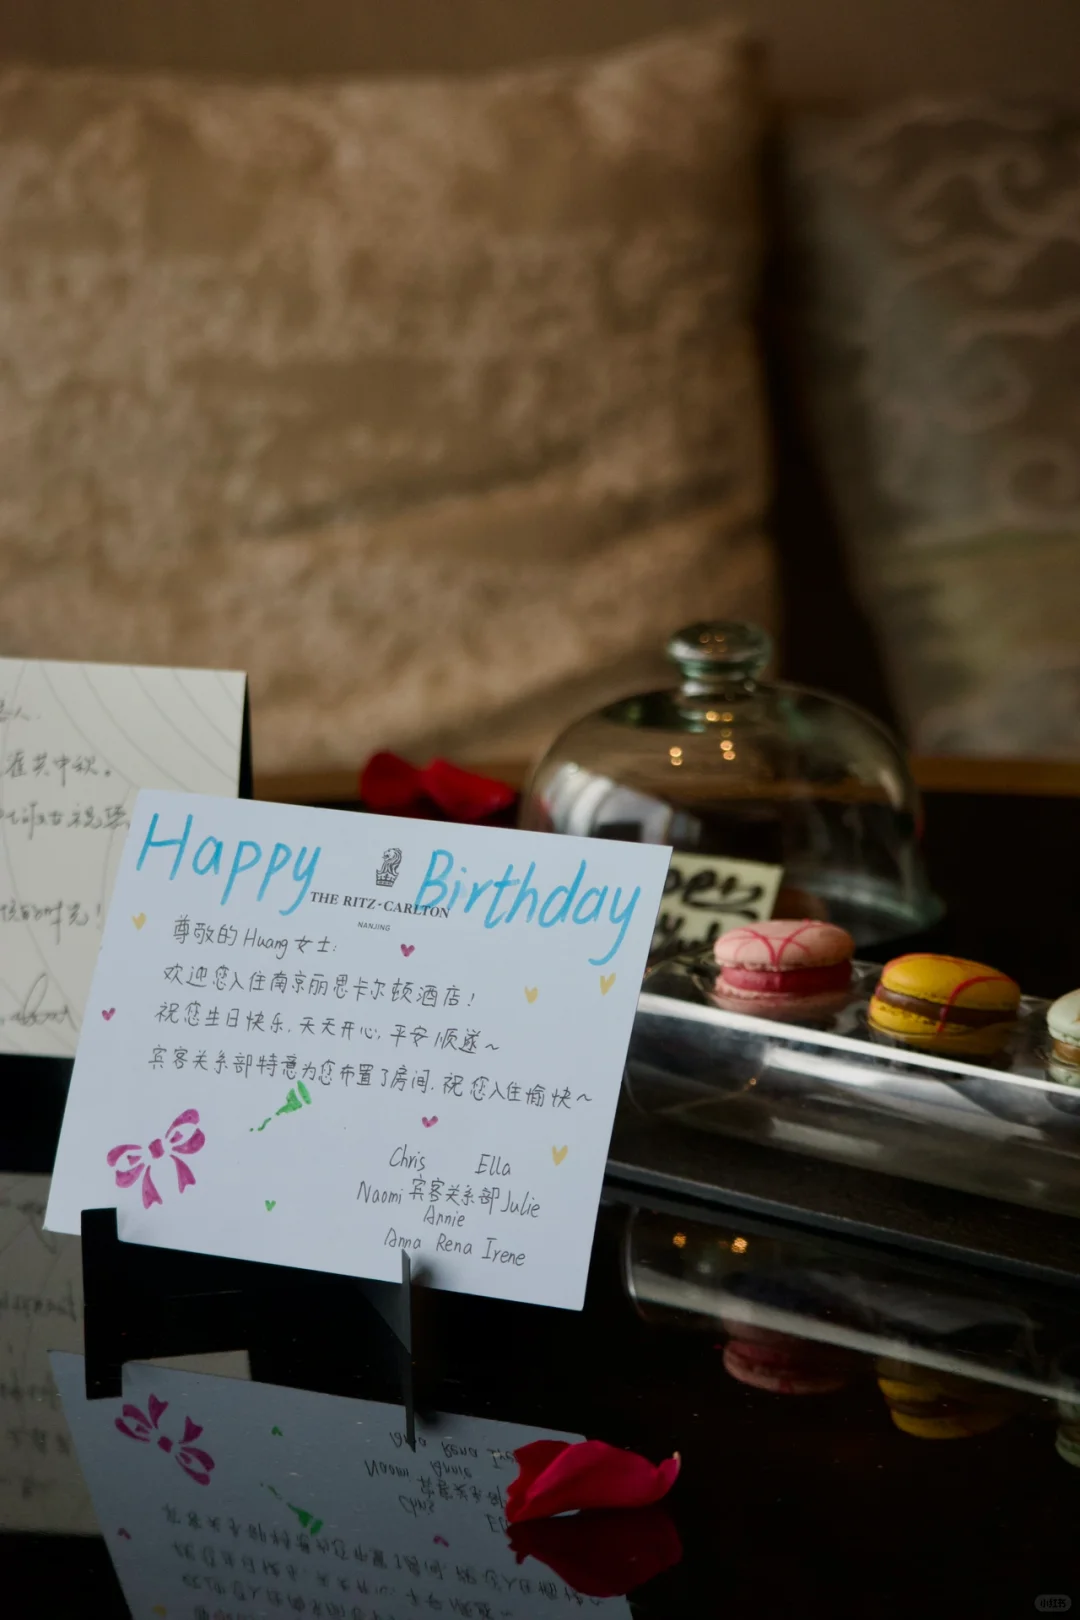 Happy Birthday
THE RITZ-CARLTON
NANJING
尊敬的Huang女士:
欢迎您入住南京丽思卡尔顿酒店!
祝您生日快乐,天天开心,平安顺遂~
宾客关系部特意为您布置了房间,祝您入住愉快~
Chris Ella
Naomi 宾客关系部 Julie
Annie
Anna Rena Irene
中秋。
祝您
时光!
小红书